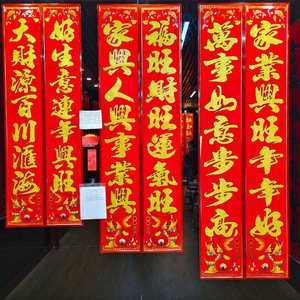 家業興旺年年好
萬事如意步步高
福旺財旺運氣旺
家興人興事業興
好生意連年興旺
大財源百川匯海